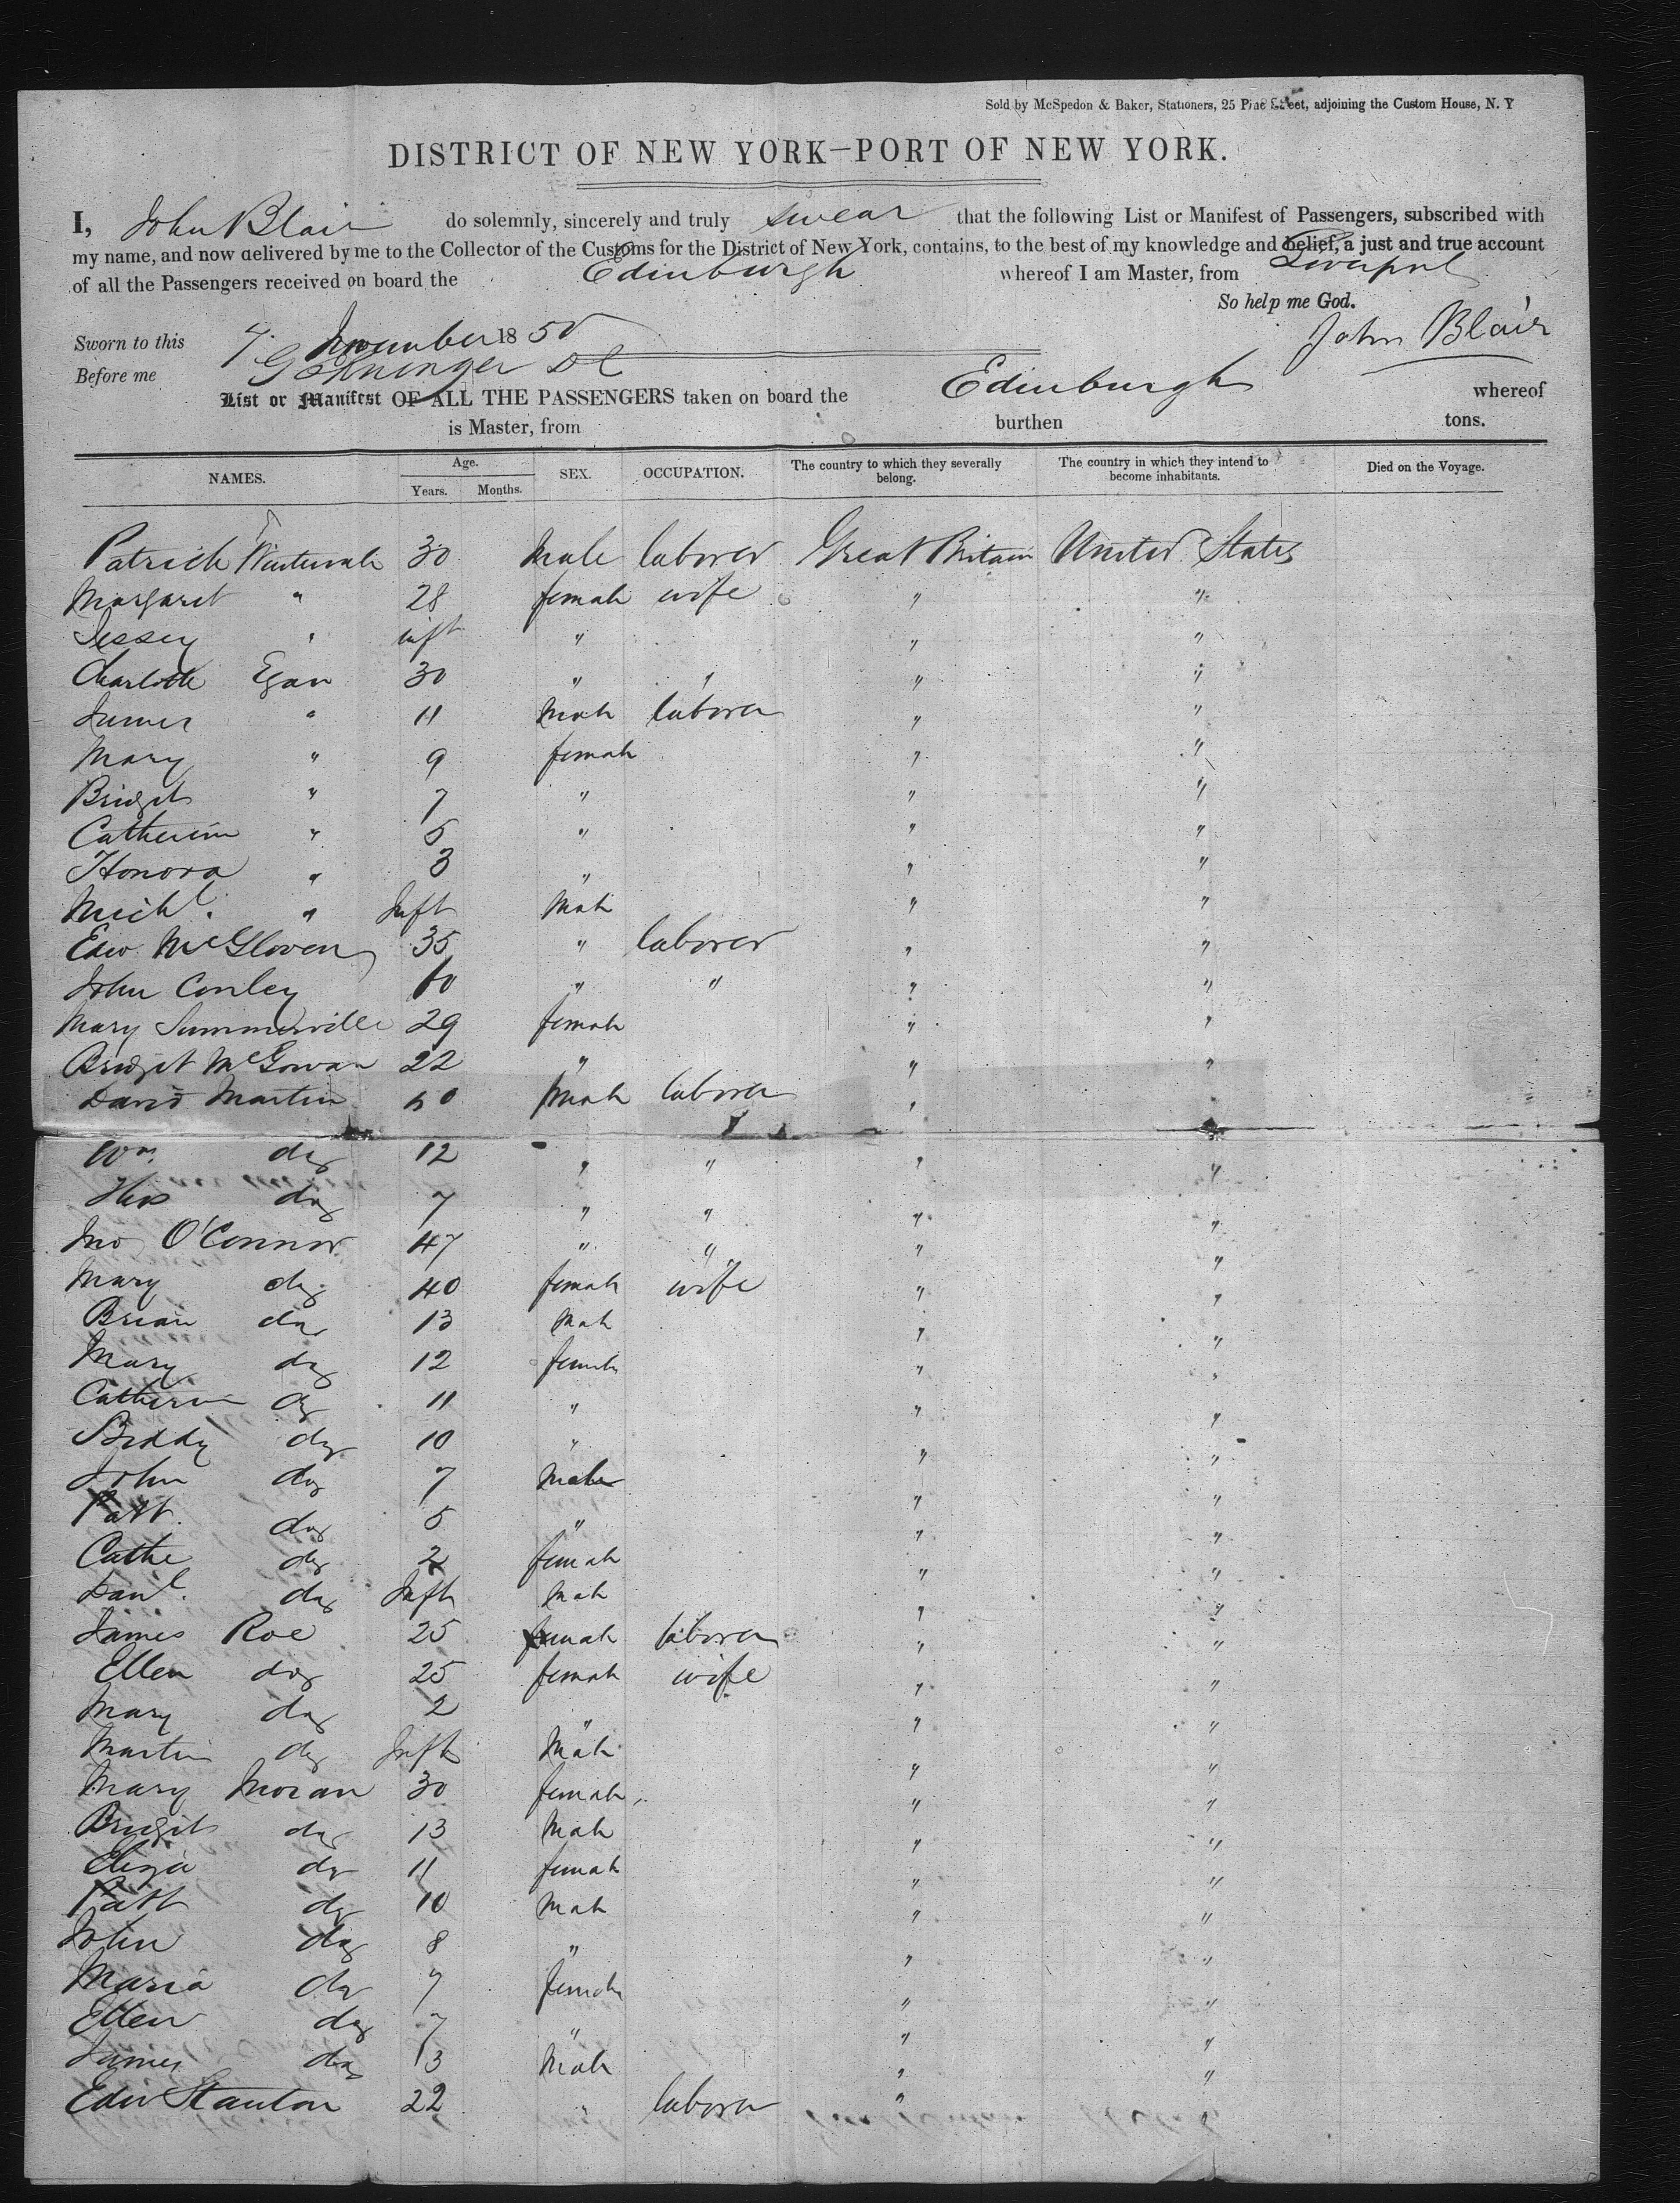 Sold by McSpedon & Baker, Stationers, 25 Pine Street, adjoining the Custom House, N. Y
DISTRICT OF NEW YORK—PORT OF NEW YORK.
I, John Blair do solemnly, sincerely and truly swear that the following List or Manifest of Passengers, subscribed with
my name, and now delivered by me to the Collector of the Customs for the District of New York, contains, to the best of my knowledge and belief, a just and true account
of all the Passengers received on board the Edinburgh whereof I am Master, from Liverpool
So help me God.
Sworn to this 4 November 1850 John Blair
Before me
List or Manifest OF ALL THE PASSENGERS taken on board the Edinburgh whereof
is Master, from burthen tons.
NAMES. Age. Years. Months. SEX. OCCUPATION. The country to which they severally belong. The country in which they intend to become inhabitants. Died on the Voyage.
Patrick 30 Male laborer Great Britain United States
Margaret " 28 female wife " "
Jessey " inft " " "
Charlotte Egan 30 " " " "
James " 11 Male laborer " "
Mary " 9 female " "
Bridget " 7 " " "
Catherine " 5 " " "
Honora " 3 " " "
Michl. " Inft Male " "
Edw McGloven 35 " laborer " "
John Conley 60 " " " "
Mary Summerville 29 female " "
Bridget McGowan 22 " " "
David Martin 50 Male laborer " "
Wm. do 12 " " " "
Thos do 7 " " " "
Jno O'Connor 47 " " " "
Mary do 40 female wife " "
Brian do 13 Male " "
Mary do 12 female " "
Catherine do 11 " " "
Biddy do 10 " " "
John do 7 Male " "
Patt. do 5 " " "
Cathe do 2 female " "
Danl. do Inft Male " "
James Roe 25 laborer " "
Ellen do 25 female wife " "
Mary do 2 " " "
Martin do Inft Male " "
Mary Moran 30 female " "
Bridget do 13 Male " "
Eliza do 11 female " "
Patt do 10 Male " "
John do 8 " " "
Maria do 7 female " "
Ellen do 7 " " "
James do 3 Male " "
Edw Stanton 22 " laborer " "